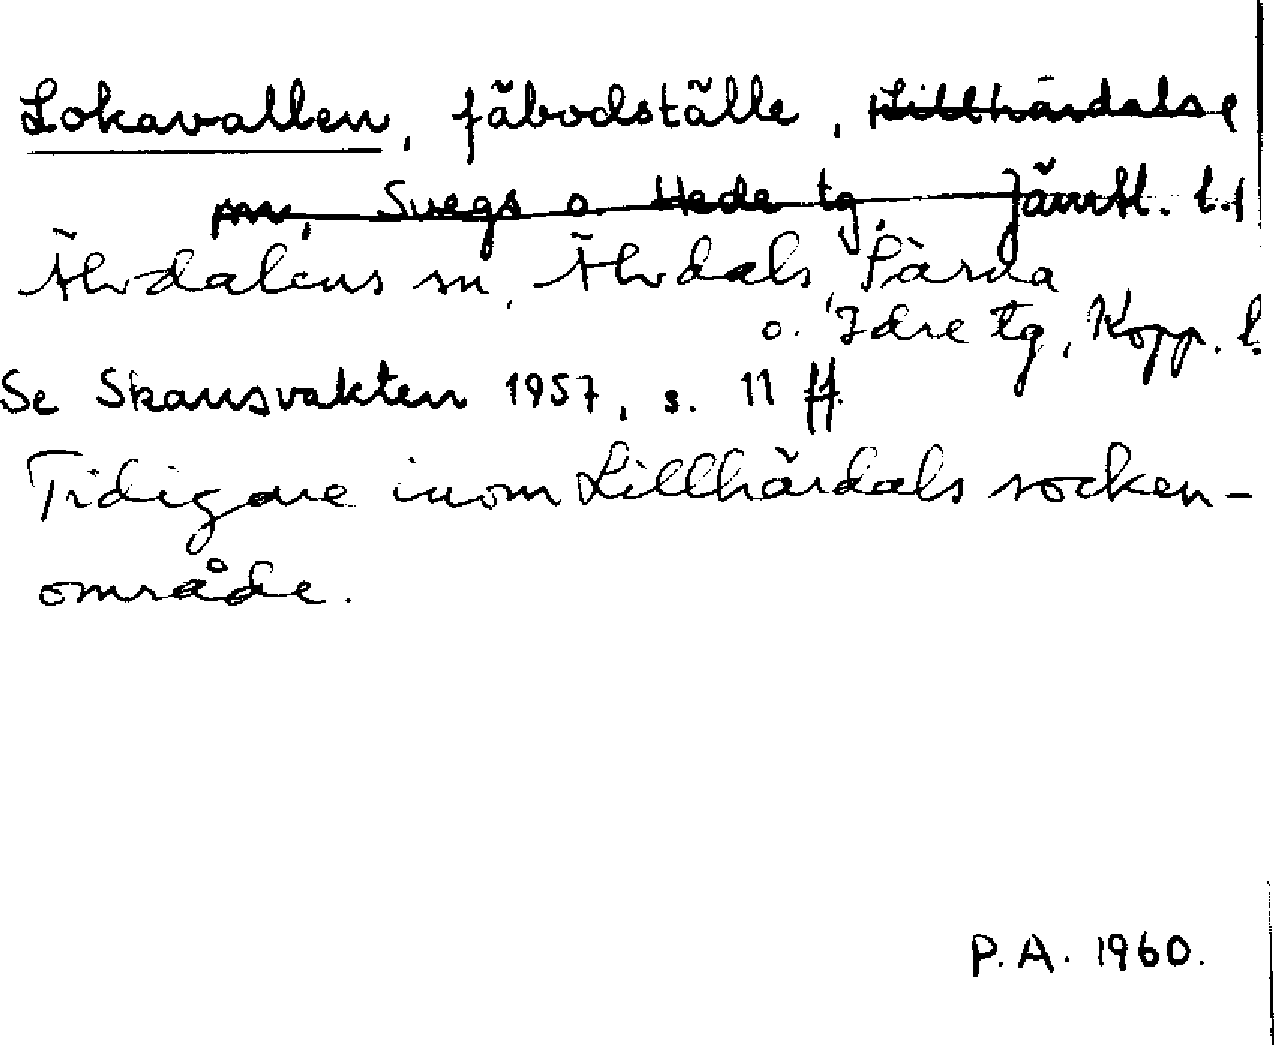 Lokavallen, fäbodställe, Lillhärdals
sn, Svegs o. Hede tg, Jämtl. l.
Älvdalens sn, Älvdals, Särna
o. Idre tg, Kopp. l.
Se Skansvakten 1957, s. 11 ff.
Tidigare inom Lillhärdals socken-
område.
P.A. 1960.